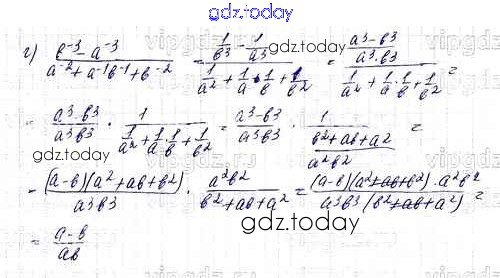 gdz.today
г) (b⁻³ - a⁻³)/(a⁻² + a⁻¹b⁻¹ + b⁻²) = (1/b³ - 1/a³)/(1/a² + 1/a · 1/b + 1/b²) = ((a³-b³)/(a³·b³))/(1/a² + 1/a · 1/b + 1/b²) =
gdz.today
= (a³-b³)/(a³b³) · 1/(1/a² + 1/a · 1/b + 1/b²) = (a³-b³)/(a³b³) · 1/((b²+ab+a²)/(a²b²)) =
gdz.today
gdz.today
= ((a-b)(a²+ab+b²))/(a³b³) · (a²b²)/(b²+ab+a²) = ((a-b)(a²+ab+b²)·a²b²)/(a³b³(b²+ab+a²)) =
gdz.today
= (a-b)/(ab)